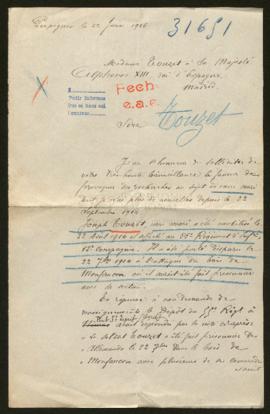 Perpignan le 22 Juin 1916
31651
Madame Touzet à Sa Majesté
Alphonse XIII roi d'Espagne
Madrid.
Pedir Informes
Fech
e.a.e.
Touzet
Sire
J'ai l'honneur de solliciter de
votre très haute bienveillance la faveur de
recherches au sujet de mon mari
dont je n'ai plus de nouvelles depuis le 22
Septembre 1914
Joseph Touzet, mon mari a été mobilisé le
Août 1914 et affecté au 55e Régiment d'Infie
Compagnie. Il a été porté disparu le
22 7bre 1914 à l'attaque du bois de
Montfaucon où il aurait été fait prisonnier
En réponse à ma demande de
renseignements le Dépôt du 55e Régt
avait répondu par le mot ci-après
le soldat Touzet a été fait prisonnier des
Allemands le 22 7bre dans le bois de
Montfaucon avec plusieurs de ses camarades